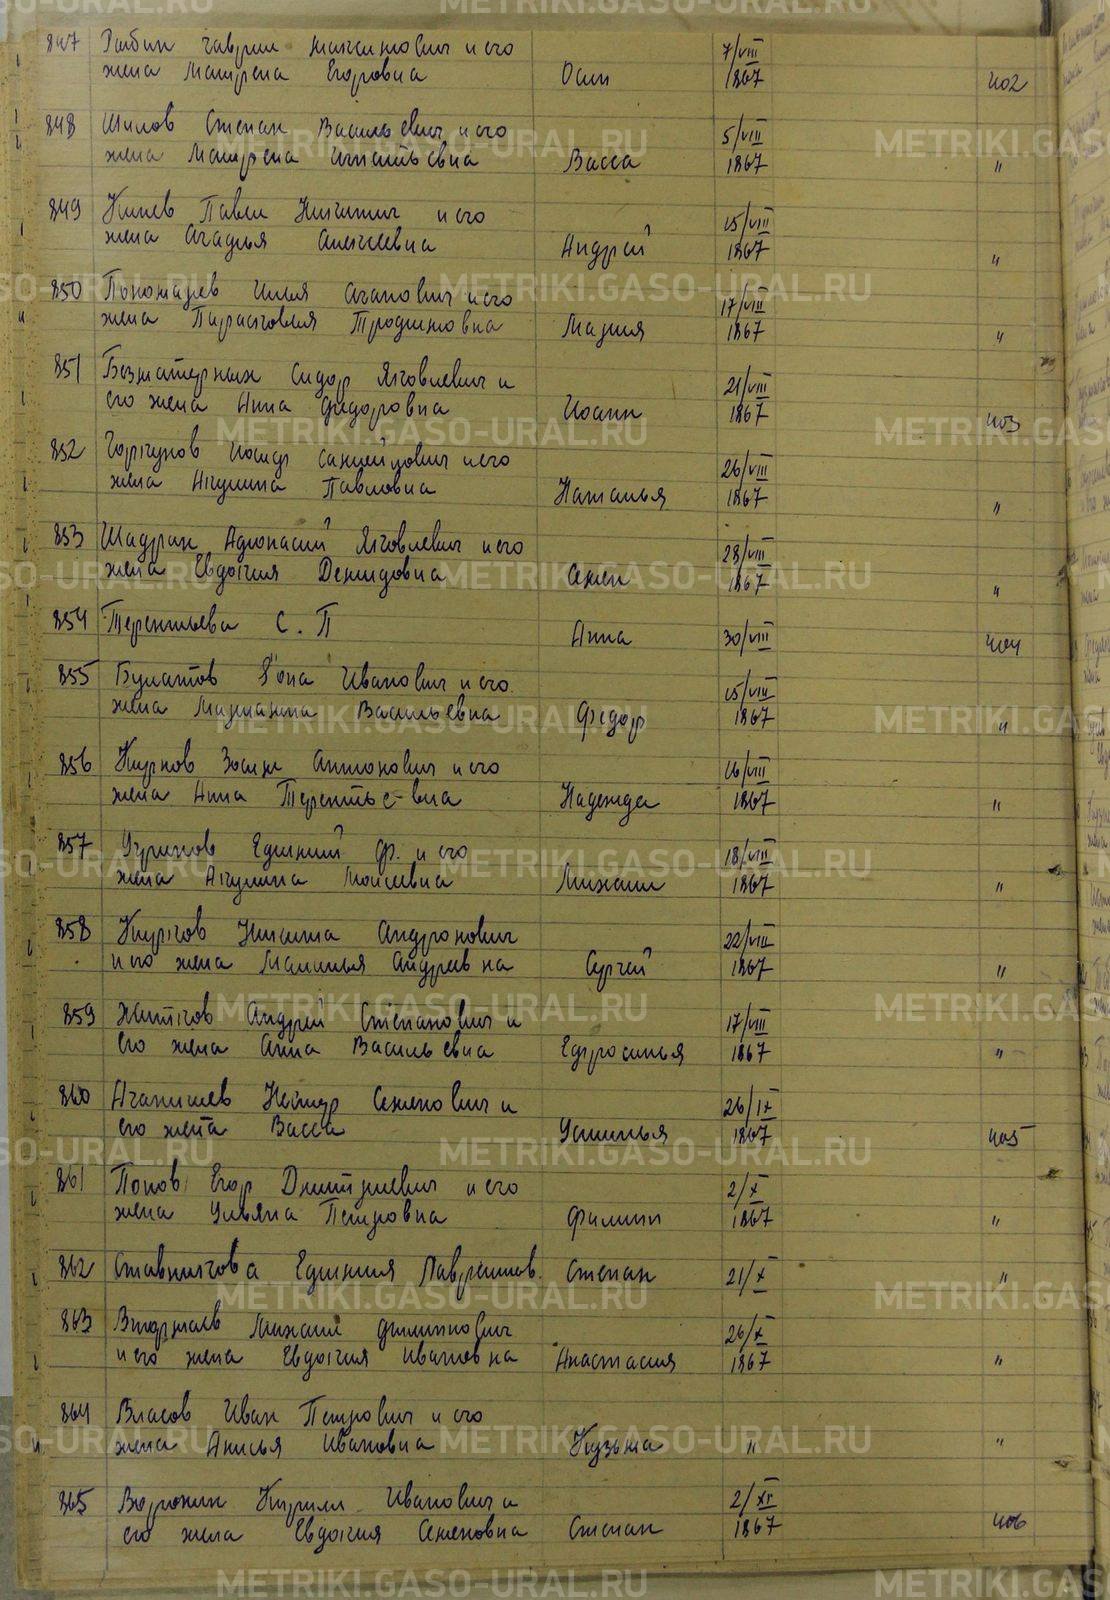 847 Рябин Гаврил Максимович и его 7/VIII
жена Матрена Егоровна Осип 1867 402
848 Шилов Степан Васильевич и его 5/VIII
жена Матрена Игнатьевна Васса 1867 "
849 Павел Никитич и его 15/VIII
жена Агафья Алексеевна Андрей 1867 "
850 Пономарев Илья Агапович и его 17/VIII
жена Парасковия Трофимовна Мария 1867 "
851 Безматерных Сидор Яковлевич и 21/VIII
его жена Анна Федоровна Иоанн 1867 403
852 Горкунов Иосиф Самойлович и его 26/VIII
жена Акулина Павловна Наталья 1867 "
853 Шадрин Афонасий Яковлевич и его 28/VIII
жена Евдокия Демидовна Семен 1867 "
854 Терентьева С. П Анна 30/VIII 404
855 Булатов Фома Иванович и его 15/VIII
жена Марианна Васильевна Федор 1867 "
856 Зосим Антонович и его 16/VIII
жена Анна Терентьевна Надежда 1867 "
857 Ефимий Ф. и его 18/VIII
жена Акулина Моисеевна Михаил 1867 "
858 Никита Андронович 22/VIII
и его жена Маланья Андреевна Сергей 1867 "
859 Житков Андрей Степанович и 17/VIII
его жена Анна Васильевна Ефросинья 1867 "
860 Нестер Семенович и 26/IX
его жена Васса Устинья 1867 405
861 Попов Егор Дмитриевич и его 2/X
жена Ульяна Петровна Филипп 1867 "
862 Ставникова Ефимия Лаврентов. Степан 21/X "
863 Михаил Филиппович 26/X
и его жена Евдокия Ивановна Анастасия 1867 "
864 Власов Иван Петрович и его
жена Анисья Ивановна Кузьма " "
865 Воронин Кирилл Иванович и 2/XI
его жена Евдокия Семеновна Степан 1867 406
METRIKI.GASO-URAL.RU